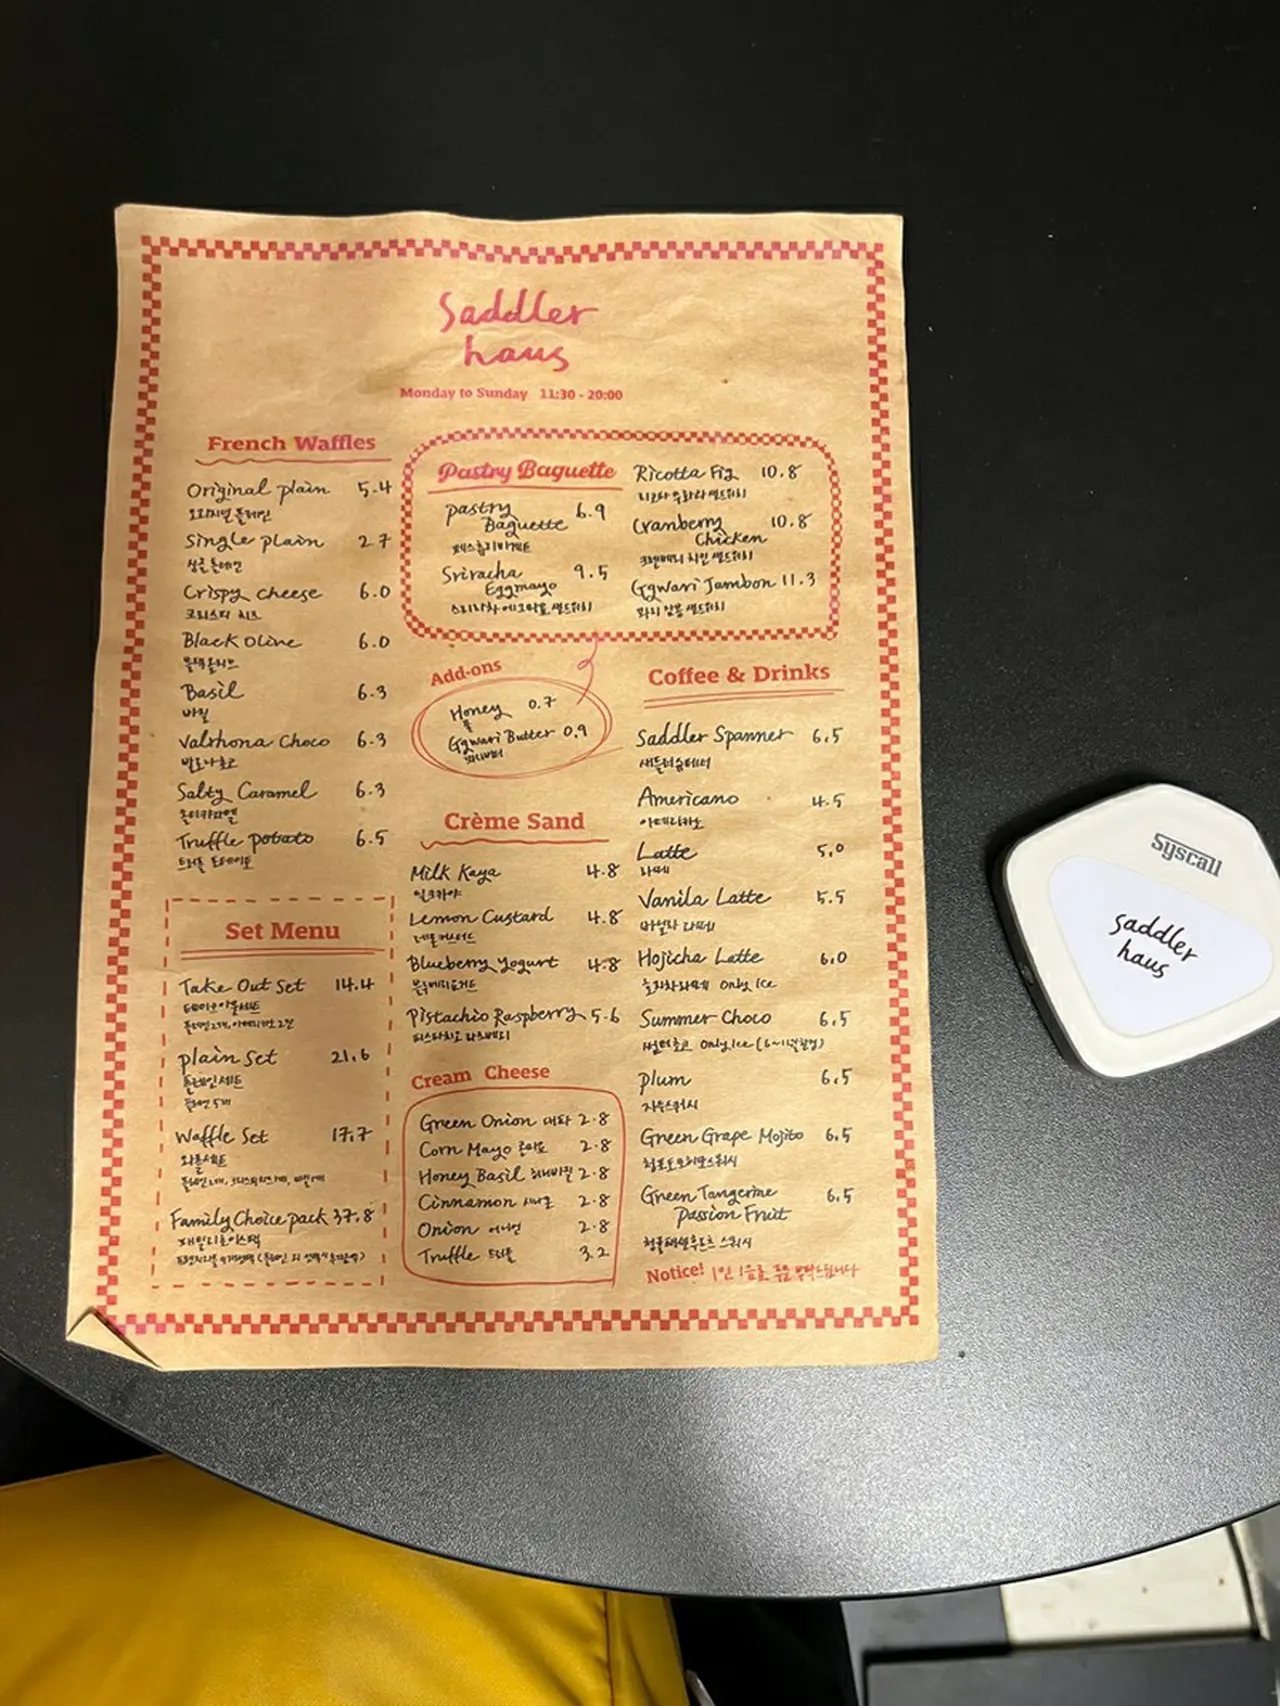 Saddler
haus
Monday to Sunday 11:30 - 20:00
French Waffles
Original plain 5.4
오리지널 플레인
Single plain 2.7
싱글 플레인
Crispy cheese 6.0
크리스피 치즈
Black Olive 6.0
블랙올리브
Basil 6.3
바질
Valrhona Choco 6.3
발로나초코
Salty Caramel 6.3
솔티카라멜
Truffle potato 6.5
트러플 포테이토
Set Menu
Take Out Set 14.4
테이크아웃세트
플레인2개, 아메리카노 2잔
plain Set 21.6
플레인세트
플레인 5개
Waffle Set 17.7
와플세트
Family Choice pack 37.8
패밀리초이스팩
Pastry Baguette
pastry
Baguette 6.9
페스츄리바게트
Sriracha
Eggmayo 9.5
스리라차 에그마요 샌드위치
Ricotta Fig 10.8
리코타 무화과 샌드위치
Cranberry
Chicken 10.8
크랜베리 치킨 샌드위치
Ggwari Jambon 11.3
꽈리 잠봉 샌드위치
Add-ons
Honey 0.7
꿀
Ggwari Butter 0.9
꽈리버터
Crème Sand
Milk Kaya 4.8
밀크카야
Lemon Custard 4.8
레몬커스터드
Blueberry Yogurt 4.8
블루베리요거트
Pistachio Raspberry 5.6
피스타치오 라즈베리
Cream Cheese
Green Onion 대파 2.8
Corn Mayo 콘마요 2.8
Honey Basil 허니바질 2.8
Cinnamon 시나몬 2.8
Onion 어니언 2.8
Truffle 트러플 3.2
Coffee & Drinks
Saddler Spanner 6.5
새들러슈페너
Americano 4.5
아메리카노
Latte 5.0
라떼
Vanila Latte 5.5
바닐라 라떼
Hojicha Latte 6.0
호지차라떼 Only Ice
Summer Choco 6.5
썸머초코 Only Ice
plum 6.5
자두스쿼시
Green Grape Mojito 6.5
청포도모히또스쿼시
Green Tangerine
Passion Fruit 6.5
청귤패션후르츠 스쿼시
Notice! 1인 1음료 주문 부탁드립니다
Syscall
Saddler
haus